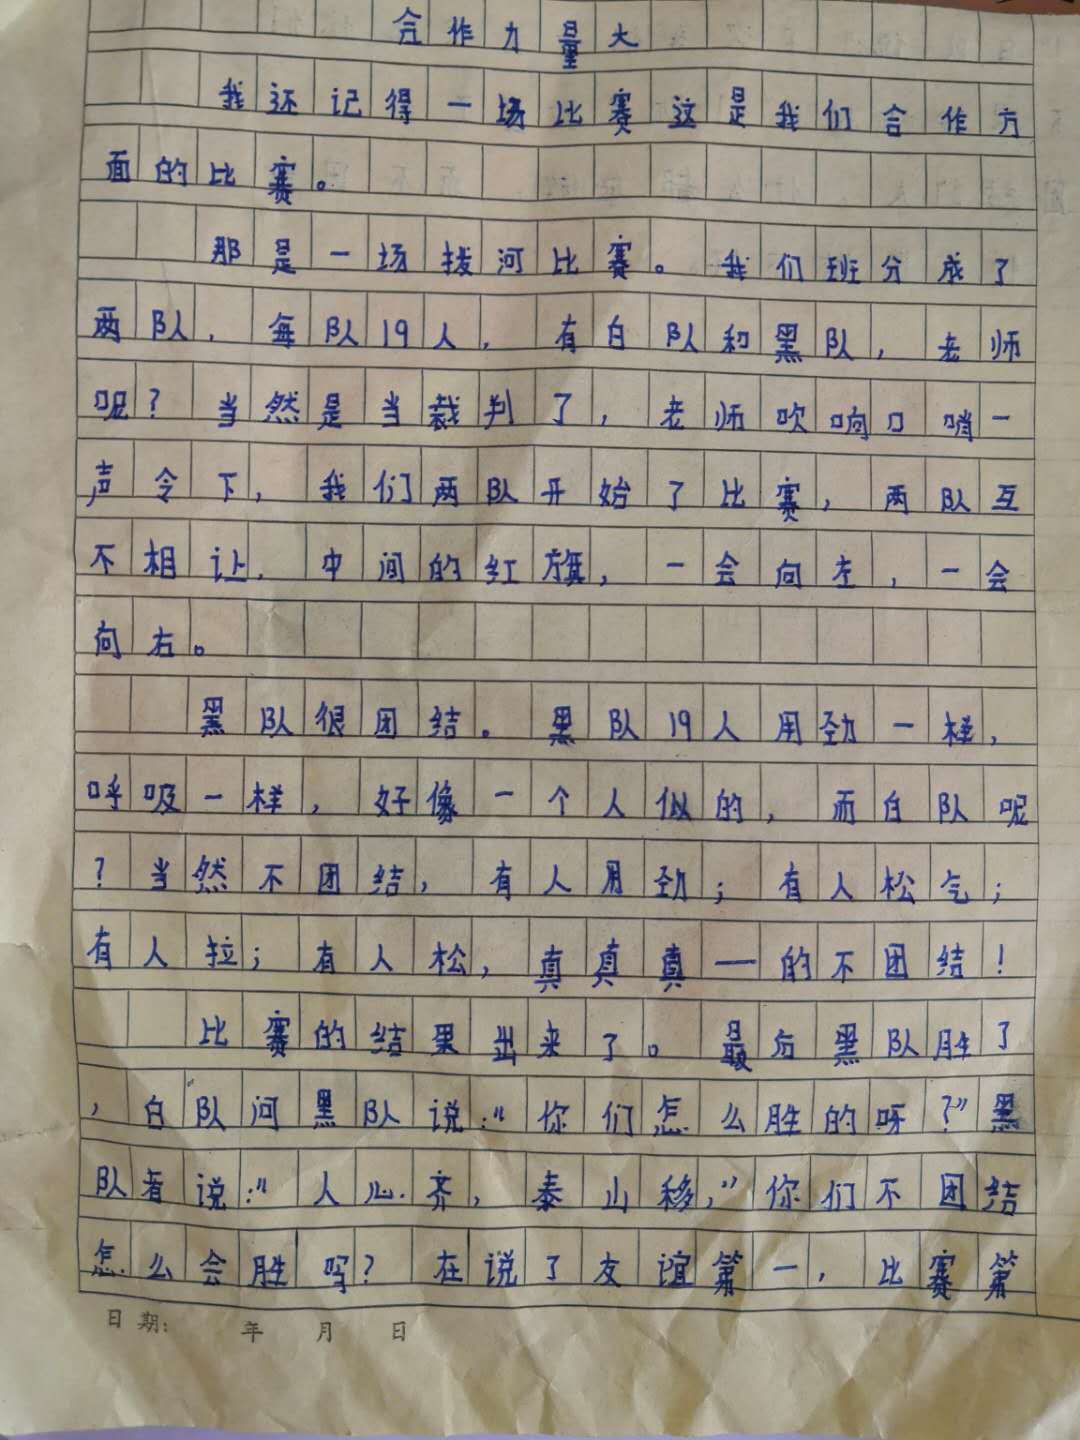 合作力量大
我还记得一场比赛这是我们合作方
面的比赛。
那是一场拔河比赛。我们班分成了
两队，每队19人，有白队和黑队，老师
呢？当然是当裁判了，老师吹响口哨一
声令下，我们两队开始了比赛，两队互
不相让，中间的红旗，一会向左，一会
向右。
黑队很团结。黑队19人用劲一样，
呼吸一样，好像一个人似的，而白队呢
？当然不团结，有人用劲；有人松气；
有人拉；有人松，真真真一的不团结！
比赛的结果出来了。最后黑队胜了
，白队问黑队说：“你们怎么胜的呀？”黑
队者说：“人心齐，泰山移，”你们不团结
怎么会胜吗？在说了友谊第一，比赛第
日期： 年 月 日